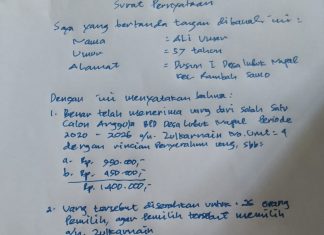 Surat Pernyataan
Saya yang bertanda tangan dibawah ini :
Nama : Ali Umar
Umur : 57 tahun
Alamat : Dusun I Desa Lubuk Napal
Kec. Rambah Samo
Dengan ini menyatakan bahwa :
1. Benar telah menerima uang dari salah satu
Calon Anggota BPD Desa Lubuk Napal Periode
2020 - 2026 a/n. Zulkarnain No. Urut : 4
dengan rincian Penyerahan uang, sbb :
a. Rp. 950.000,-
b. Rp. 450.000,-
Rp. 1.400.000,-
2. Uang tersebut diserahkan untuk orang
Pemilih, agar pemilih tersebut memilih
a/n. Zulkarnain